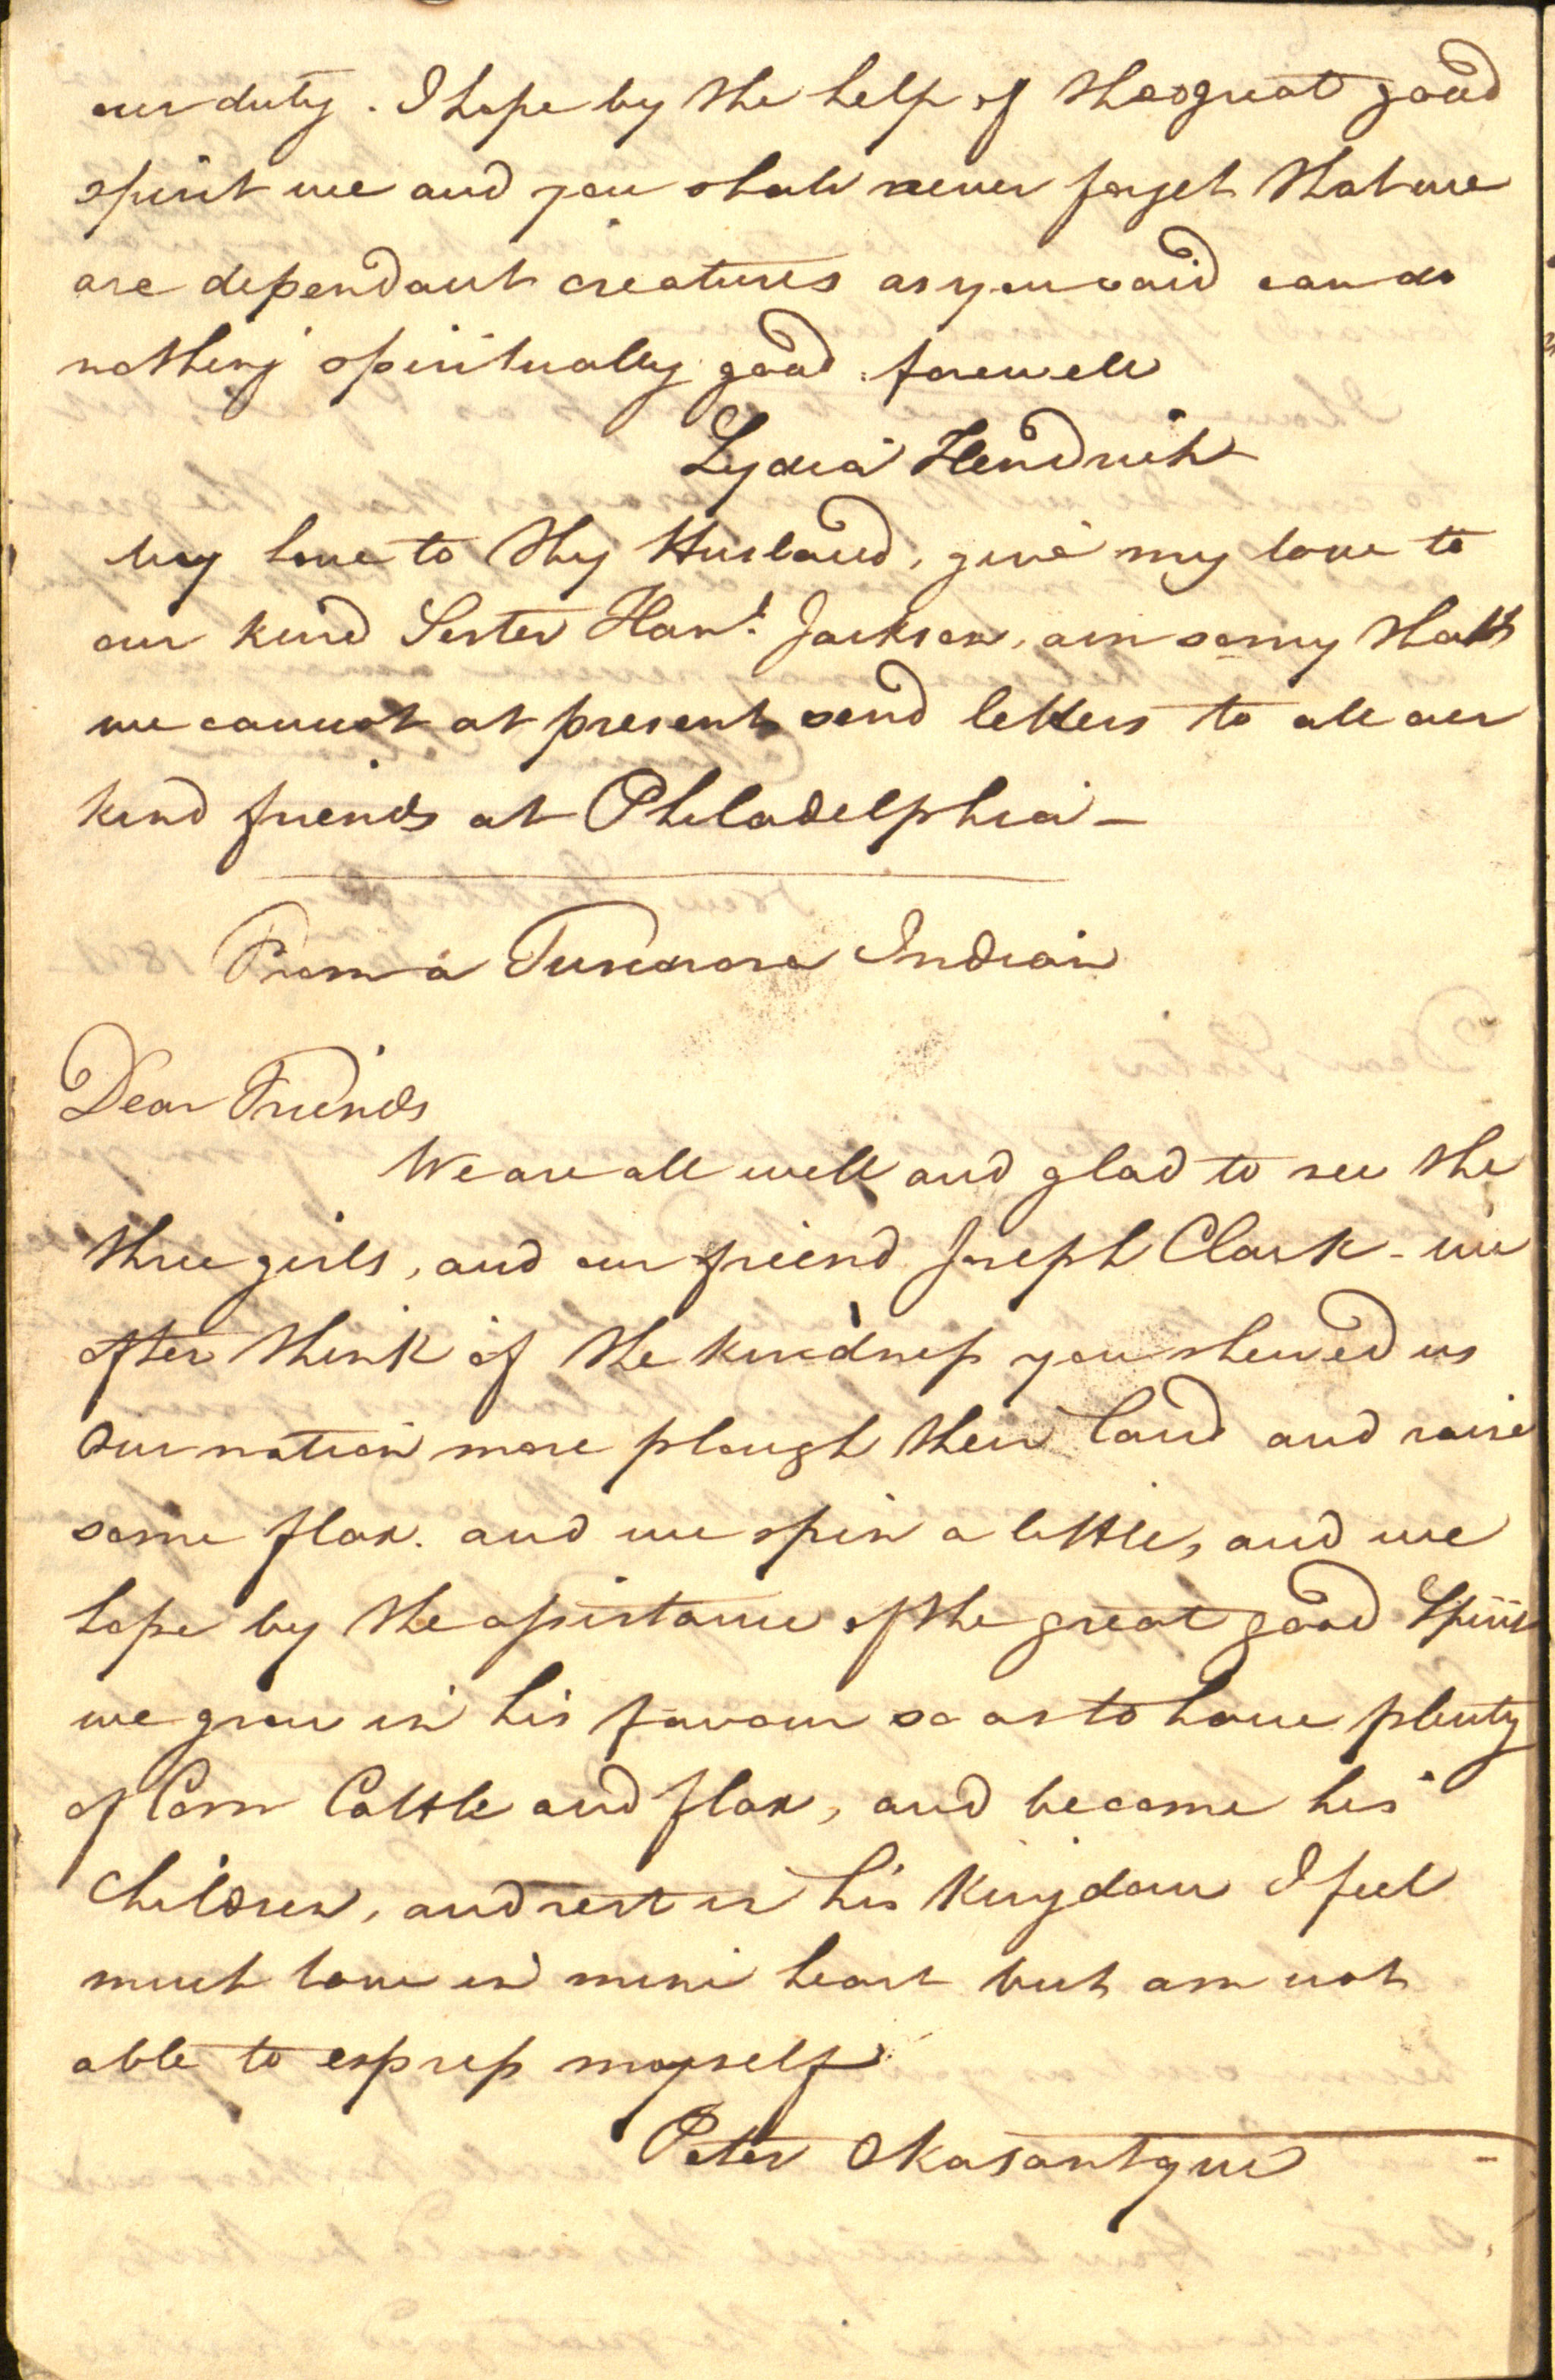 our duty. I hope by the help of the great good
spirit we and you shall never forget that we
are dependant creatures as you said can do
nothing spiritually good. farewell
Lydia Hendrick
My love to thy Husband, give my love to
our kind Sister Han.h Jackson, am sorry that
we cannot at present send letters to all our
kind friends at Philadelphia —
From a Tuscarora Indian
Dear Friends
We are all well and glad to see the
three girls, and our friend Joseph Clark - we
often think of the kindness you shewed us
Our nation more plough their land and raise
some flax. and we spin a little, and we
hope by the assistance of the great good Spirit
we grow in his favour so as to have plenty
of Corn Cattle and flax, and become his
children, and rest in his kingdom I feel
much love in mine heart but am not
able to express myself
Peter